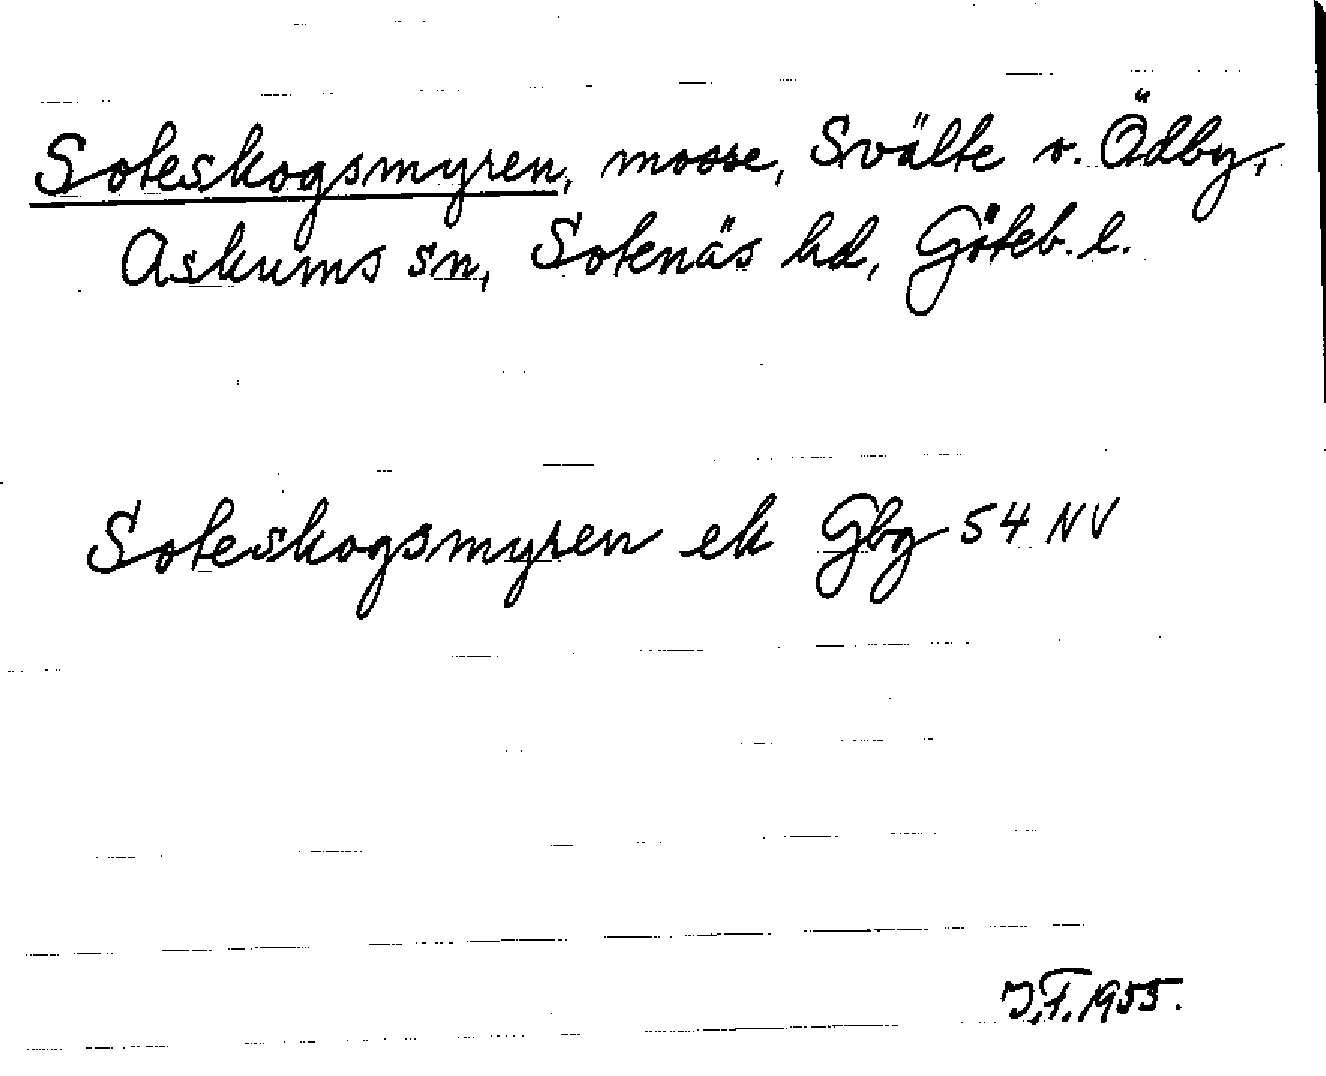 Soteskogsmyren, mosse, Svälte o. Ödby,
Askums sn, Sotenäs hd, Göteb. l.
Soteskogsmyren ek Gbg 54 NV
J.F. 1955.